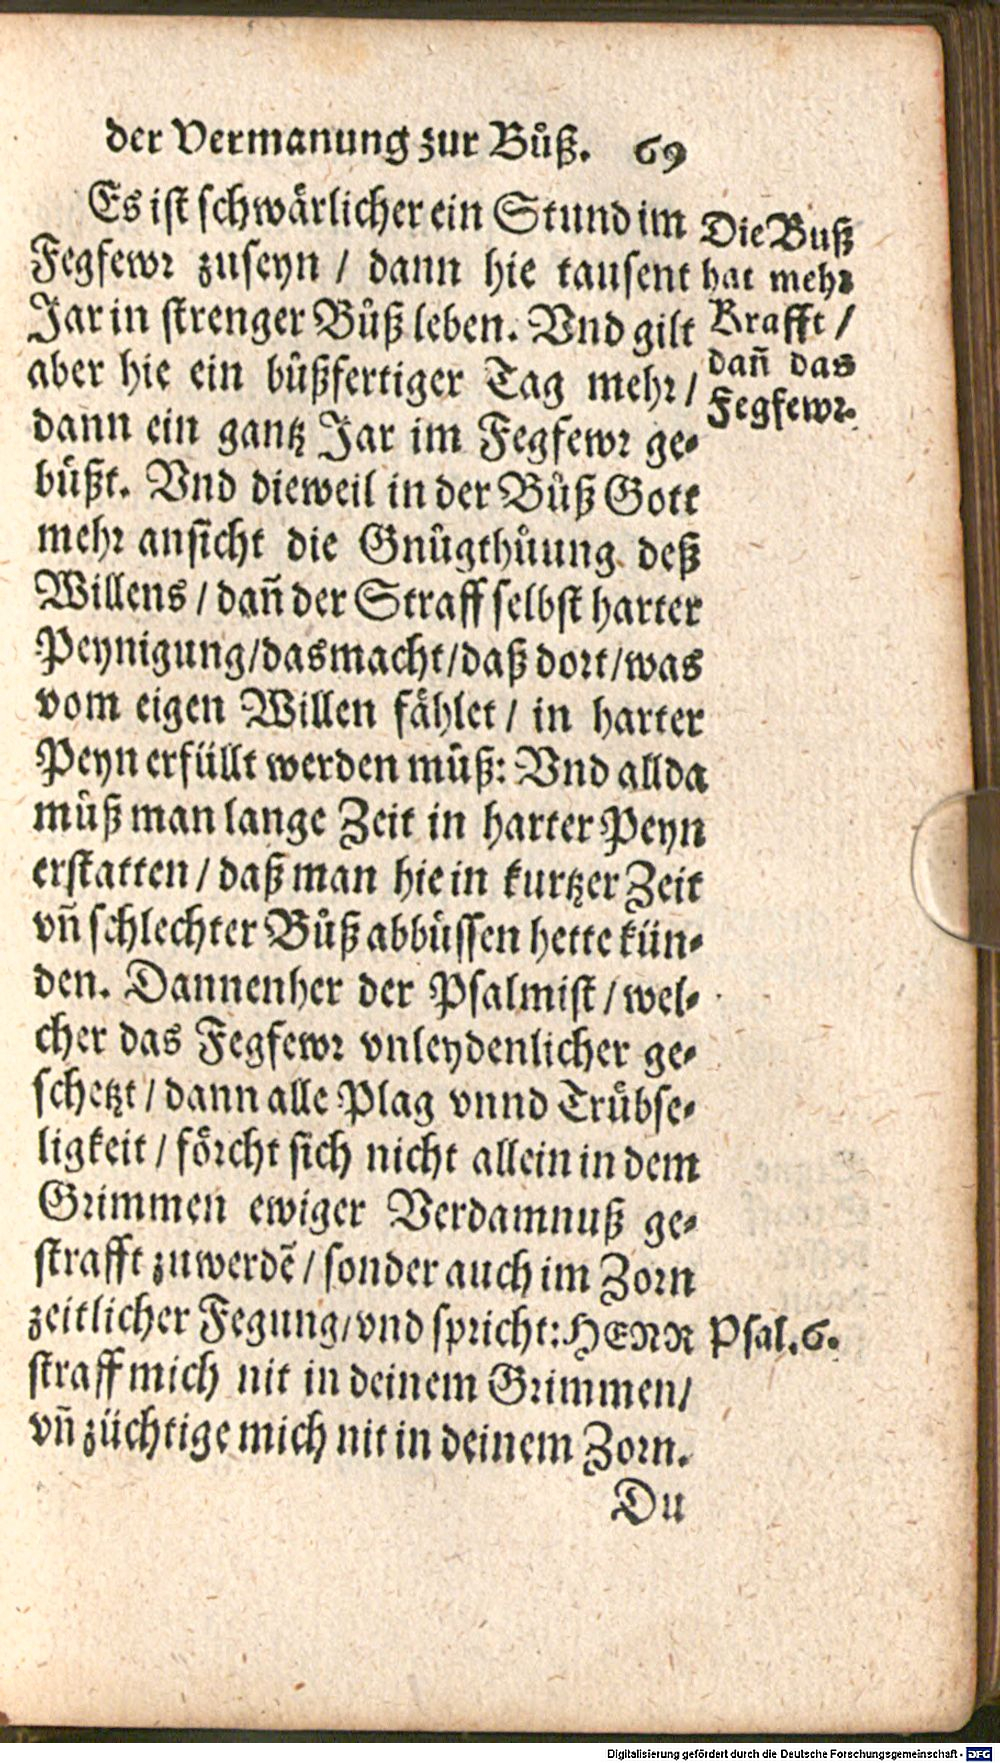 der Vermanung zur Bůß. 69
Es ist schwärlicher ein Stund im
Fegfewr zuseyn / dann hie tausent
Jar in strenger Bůß leben. Vnd gilt
aber hie ein bůßfertiger Tag mehr /
dann ein gantz Jar im Fegfewr ge-
büßt. Vnd dieweil in der Bůß Gott
mehr ansicht die Gnůgthůung deß
Willens / dañ der Straff selbst harter
Peynigung / das macht / daß dort / was
vom eigen Willen fählet / in harter
Peyn erfüllt werden můß: Vnd allda
můß man lange Zeit in harter Peyn
erstatten / daß man hie in kurtzer Zeit
vñ schlechter Bůß abbüssen hette kün-
den. Dannenher der Psalmist / wel-
cher das Fegfewr vnleydenlicher ge-
schetzt / dann alle Plag vnnd Trübse-
ligkeit / förcht sich nicht allein in dem
Grimmen ewiger Verdamnuß ge-
strafft zuwerdẽ / sonder auch im Zorn
zeitlicher Fegung / vnd spricht: HERR
straff mich nit in deinem Grimmen /
vñ züchtige mich nit in deinem Zorn.
Du
Die Buß
hat mehr
Krafft /
dañ das
Fegfewr.
Psal. 6.
Digitalisierung gefördert durch die Deutsche Forschungsgemeinschaft - DFG